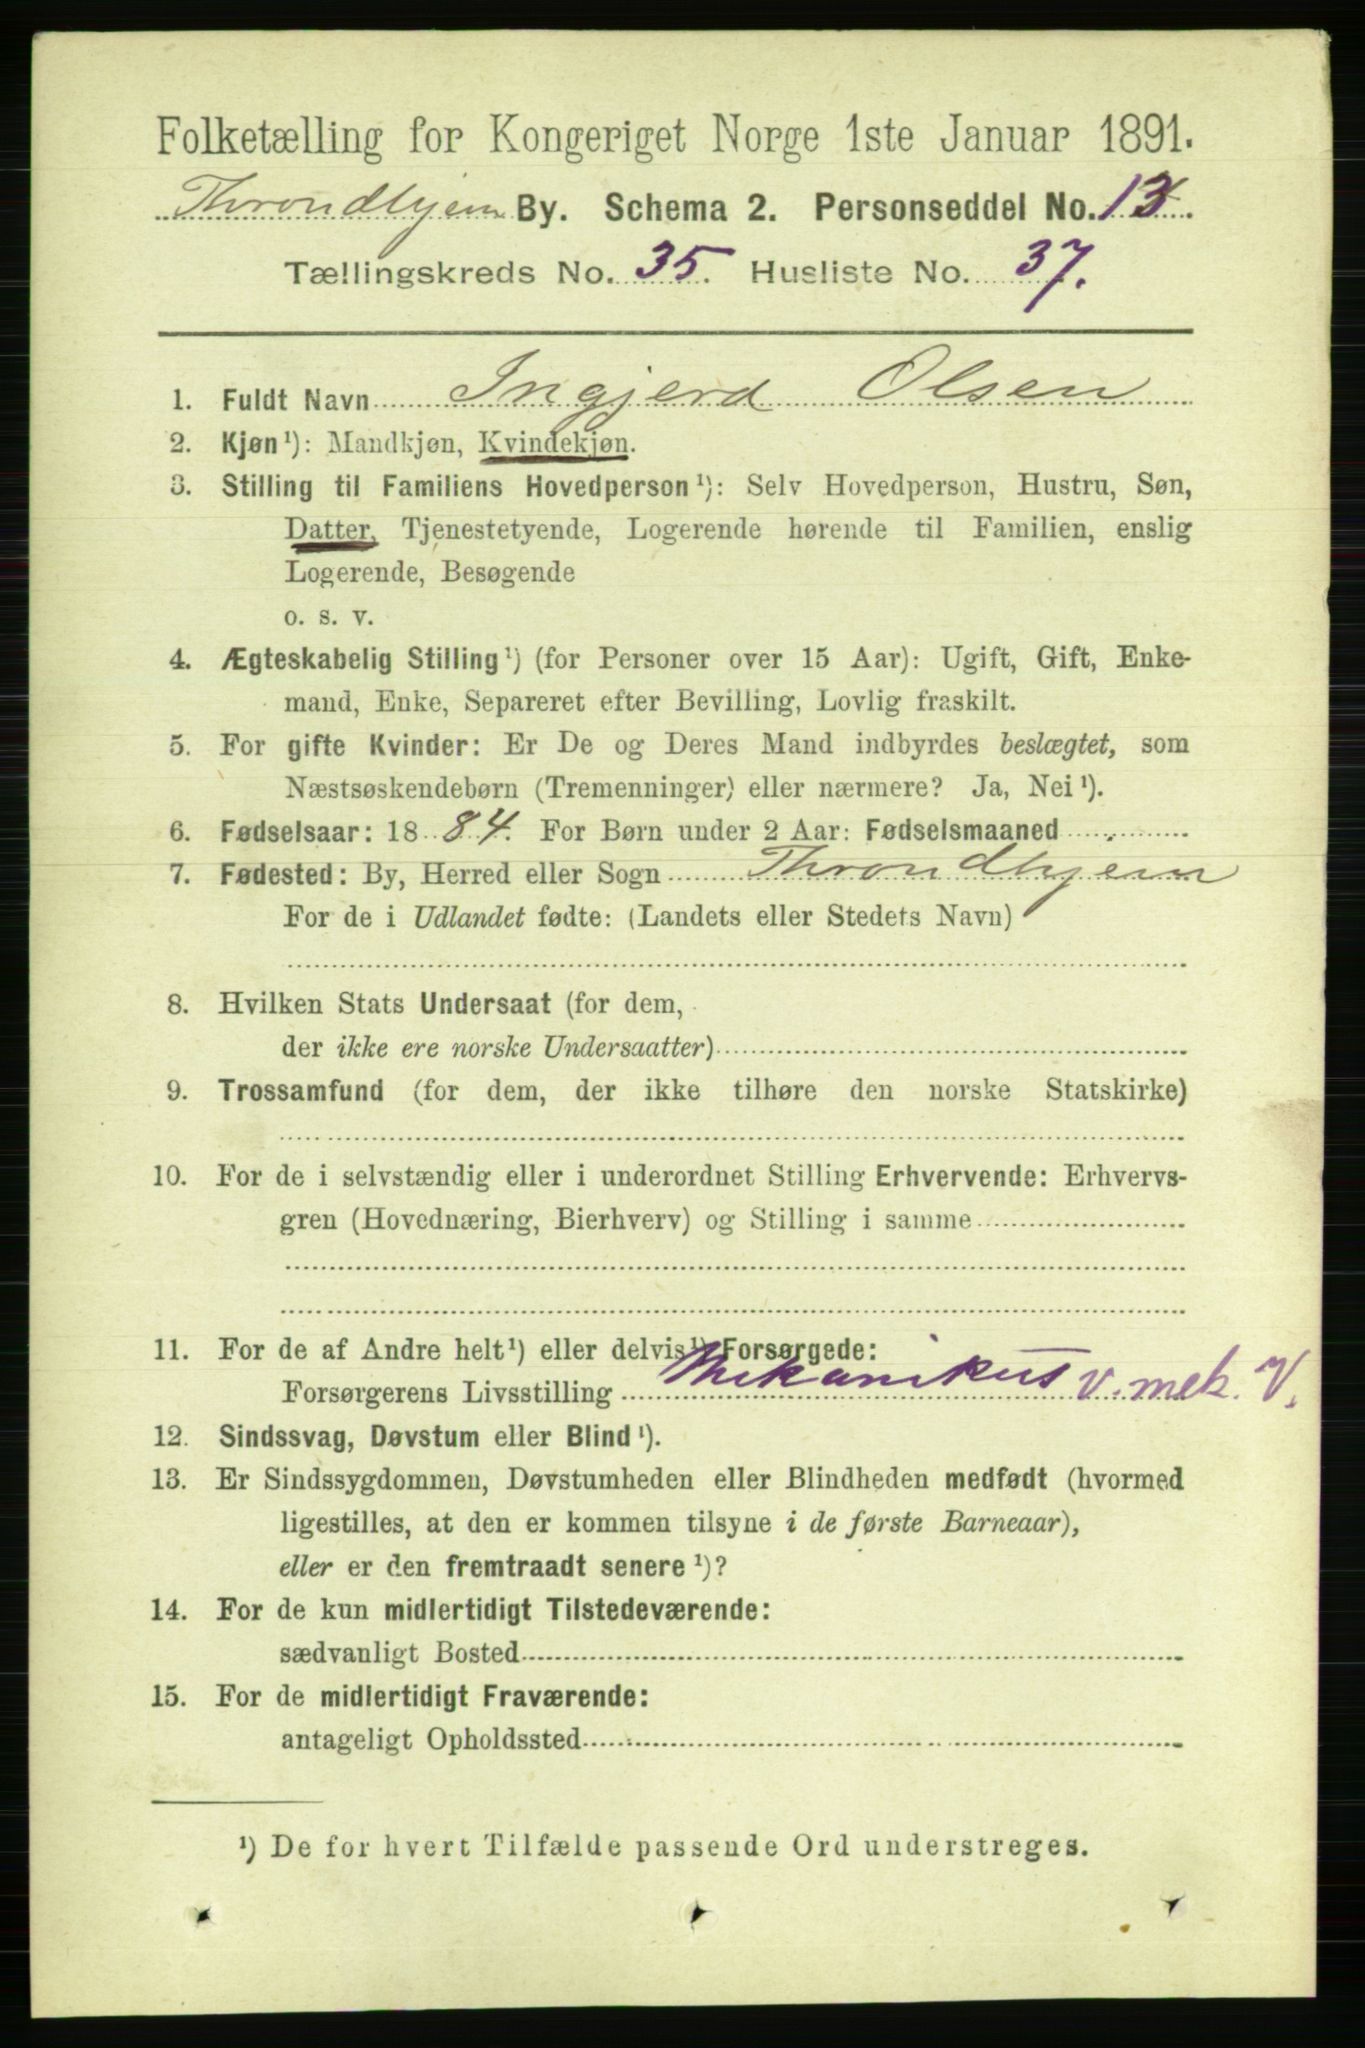 Folketælling for Kongeriget Norge 1ste Januar 1891.
Throndhjem By. Schema 2. Personseddel No. 13.
Tællingskreds No. 35. Husliste No. 37.
1. Fuldt Navn Ingjerd Olsen
2. Kjøn¹): Mandkjøn, Kvindekjøn.
3. Stilling til Familiens Hovedperson¹): Selv Hovedperson, Hustru, Søn,
Datter, Tjenestetyende, Logerende hørende til Familien, enslig
Logerende, Besøgende
o. s. v.
4. Ægteskabelig Stilling¹) (for Personer over 15 Aar): Ugift, Gift, Enke-
mand, Enke, Separeret efter Bevilling, Lovlig fraskilt.
5. For gifte Kvinder: Er De og Deres Mand indbyrdes beslægtet, som
Næstsøskendebørn (Tremenninger) eller nærmere? Ja, Nei¹).
6. Fødselsaar: 1884. For Børn under 2 Aar: Fødselsmaaned
7. Fødested: By, Herred eller Sogn Throndhjem
For de i Udlandet fødte: (Landets eller Stedets Navn)
8. Hvilken Stats Undersaat (for dem,
der ikke ere norske Undersaatter)
9. Trossamfund (for dem, der ikke tilhøre den norske Statskirke)
10. For de i selvstændig eller i underordnet Stilling Erhvervende: Erhvervs-
gren (Hovednæring, Bierhverv) og Stilling i samme
11. For de af Andre helt¹) eller delvis¹) Forsørgede:
Forsørgerens Livsstilling Mekanikus v. mek. V.
12. Sindssvag, Døvstum eller Blind¹).
13. Er Sindssygdommen, Døvstumheden eller Blindheden medfødt (hvormed
ligestilles, at den er kommen tilsyne i de første Barneaar),
eller er den fremtraadt senere¹)?
14. For de kun midlertidigt Tilstedeværende:
sædvanligt Bosted
15. For de midlertidigt Fraværende:
antageligt Opholdssted
¹) De for hvert Tilfælde passende Ord understreges.